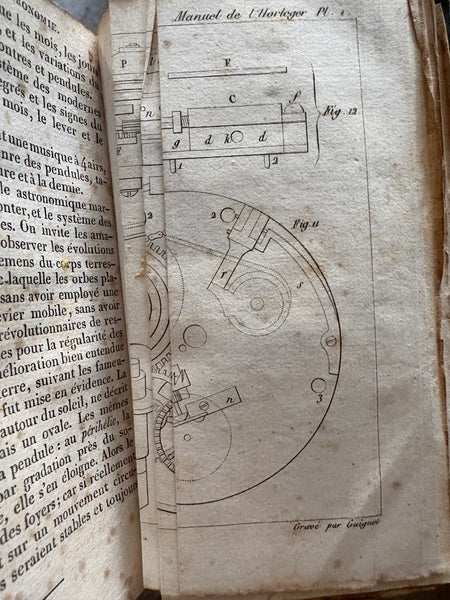 RONOMIE.
ne les mois, les jours
et les variations du
ontres et pendules.
stème des modernes
egrés et les signes du
mois, le lever et le
nt une musique à 4 airs,
nre des pendules, ta-
ure et à la demie.
le astronomique mar-
onter, et le système des
es. On invite les ama-
observer les évolutions
emens du corps terres-
c laquelle les orbes pla-
sans avoir employé une
évier mobile, sans avoir
révolutionnaires de res-
es pour la régularité des
mélioration bien entendue
terre, suivant les fameu-
fut mise en évidence. La
autour du soleil, ne décrit
ais un ovale. Les mêmes
a pendule : au périhélie, la
par gradation près du so-
, elle s'en éloigne. Alors le
des foyers; car si réellement
t sur un mouvement circu-
s seraient stables et toujours
Manuel de l'Horloger Pl. 1.
P
F
n
C
f
Fig. 12
g d k d
E
1 2
2 2
Fig. 11
r
s
n
3
Gravé par Guiguet